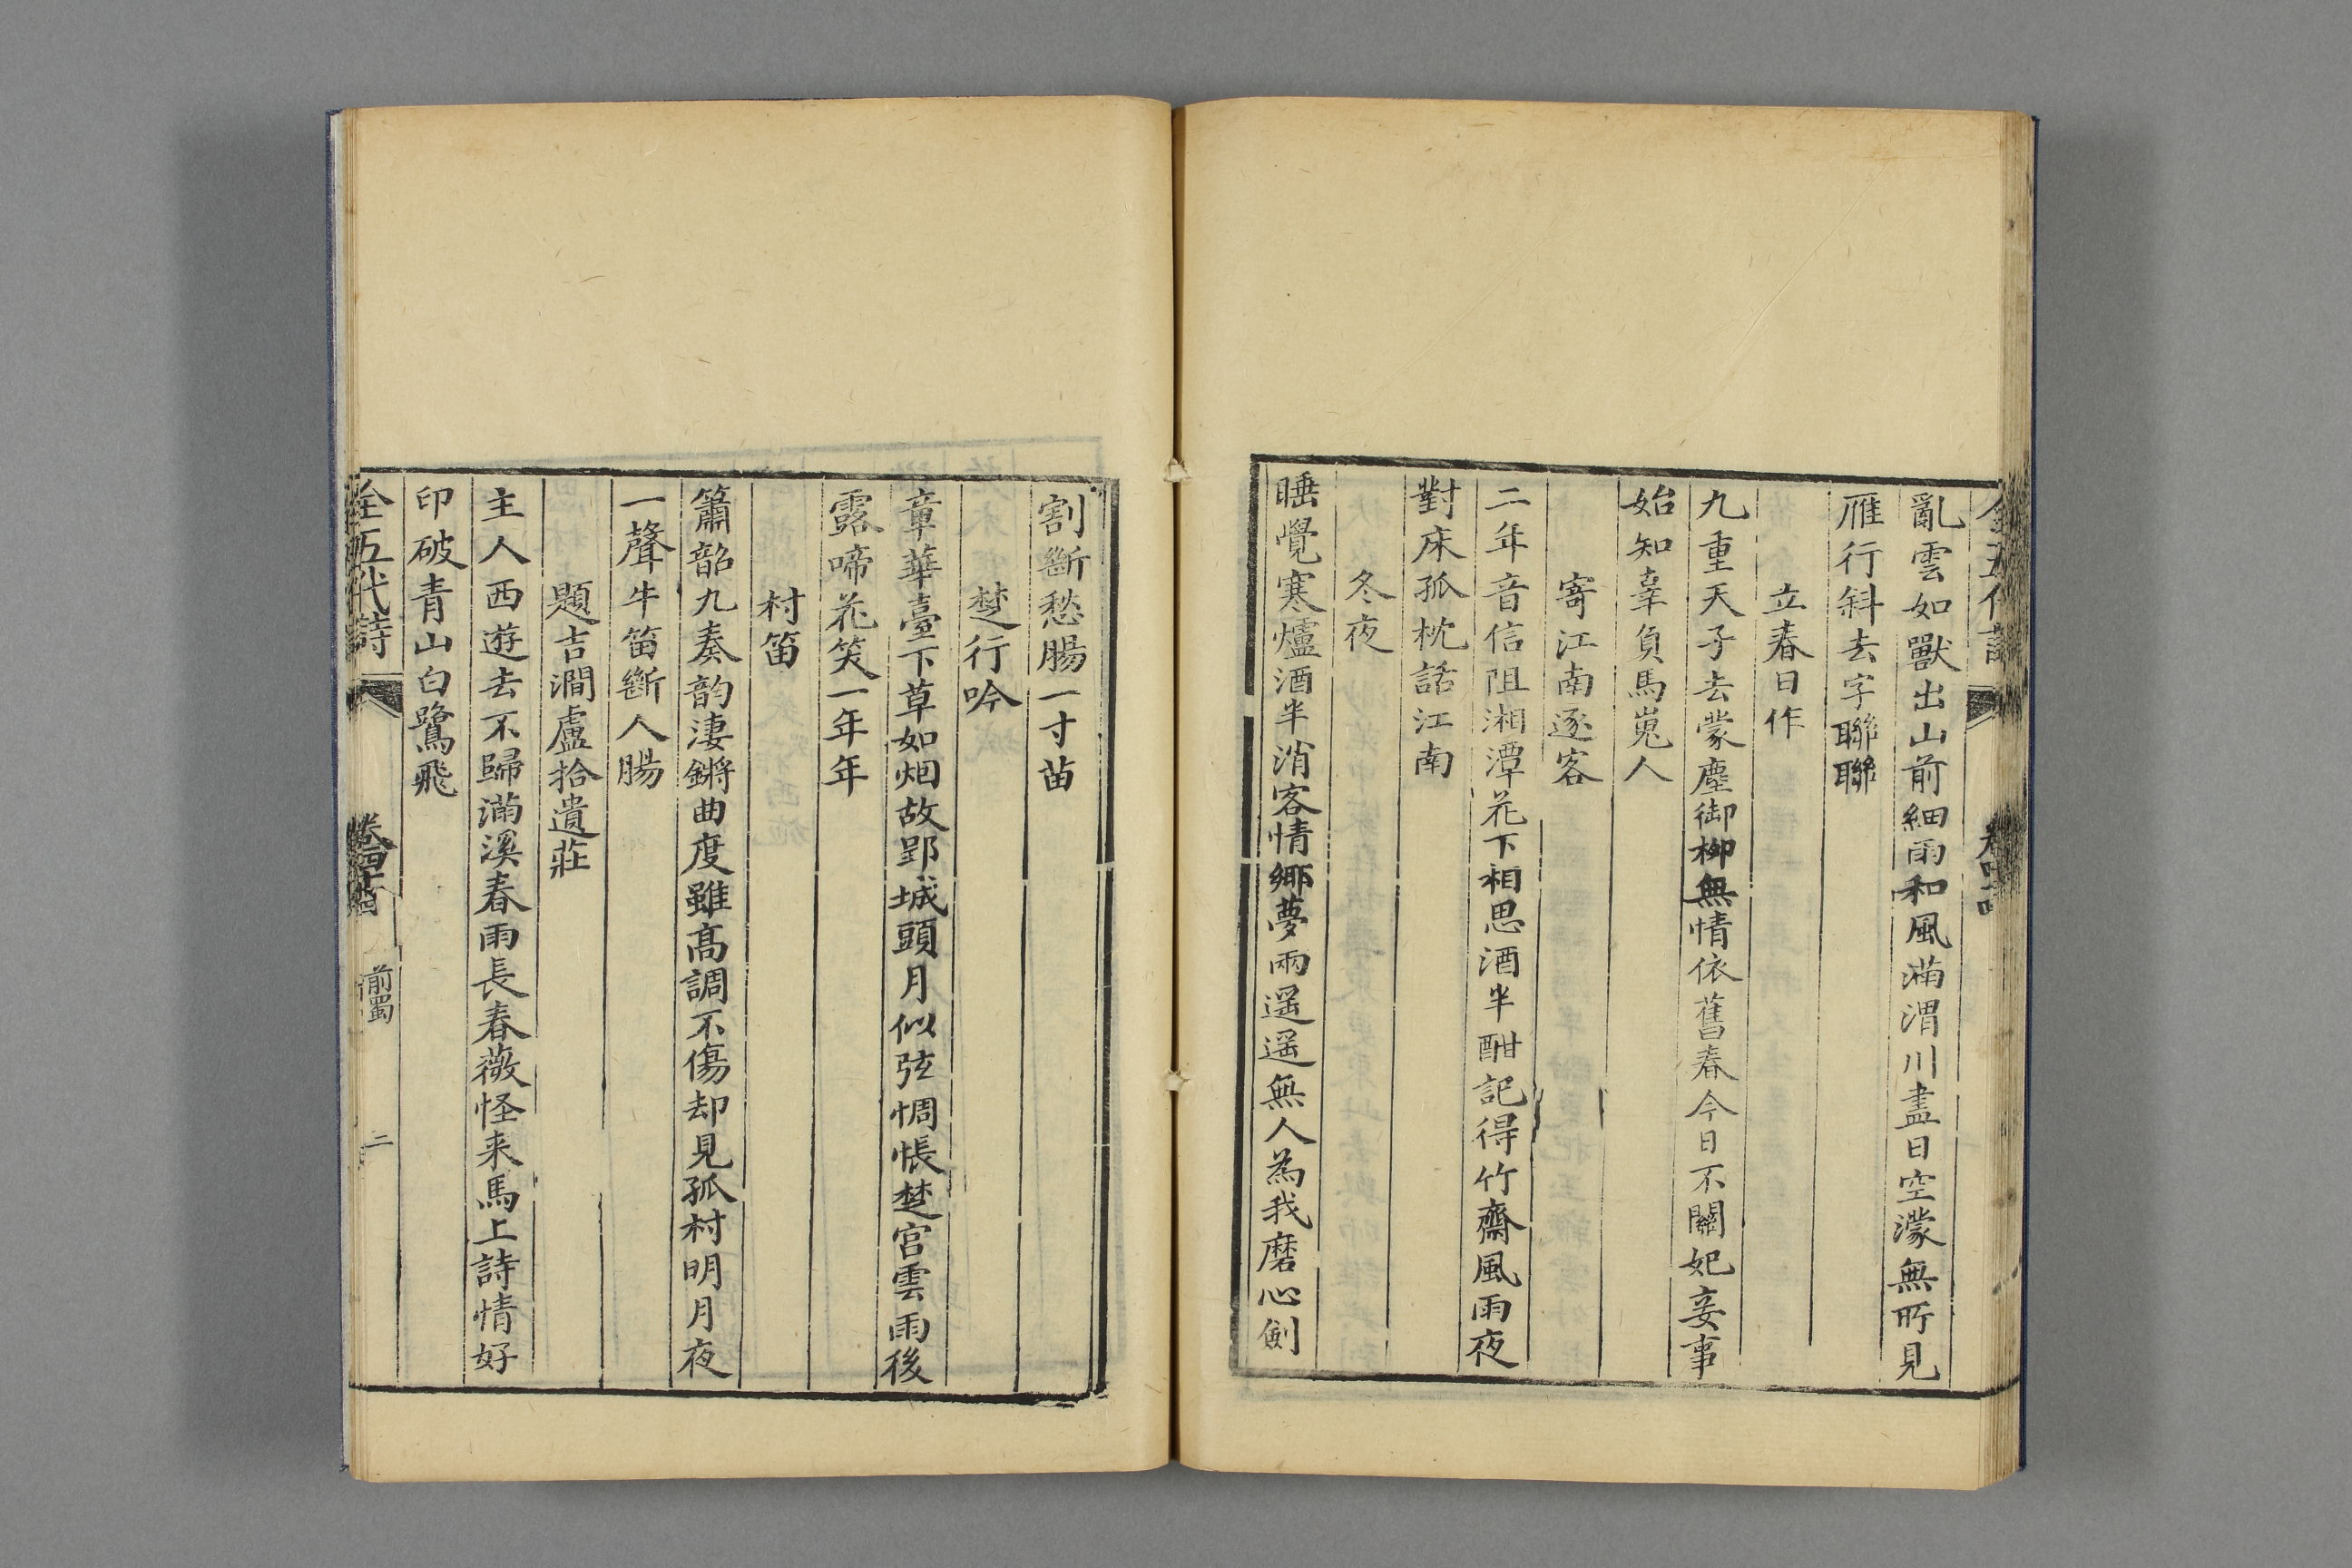 全五代詩
亂雲如獸出山前細雨和風滿渭川盡日空濛無所見
雁行斜去字聯聯
立春日作
九重天子去蒙塵御柳無情依舊春今日不關妃妾事
始知辜負馬嵬人
寄江南逐客
二年音信阻湘潭花下相思酒半酣記得竹齋風雨夜
對床孤枕話江南
冬夜
睡覺寒爐酒半消客情鄉夢兩遥遥無人為我磨心劍
割斷愁腸一寸苗
楚行吟
章華臺下草如烟故郢城頭月似弦惆悵楚宫雲雨後
露啼花笑一年年
村笛
簫韶九奏韵淒鏘曲度雖髙調不傷却見孤村明月夜
一聲牛笛斷人腸
題吉澗盧拾遺莊
主人西遊去不歸滿溪春雨長春薇怪来馬上詩情好
印破青山白鷺飛
全五代詩
卷四十四
前蜀
二